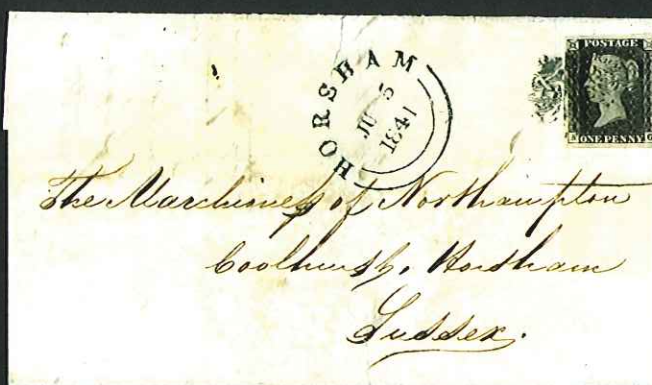 HORSHAM
JU 5
1841
POSTAGE
ONE PENNY
The Marchioness of Northampton
Coolhurst, Horsham
Sussex.